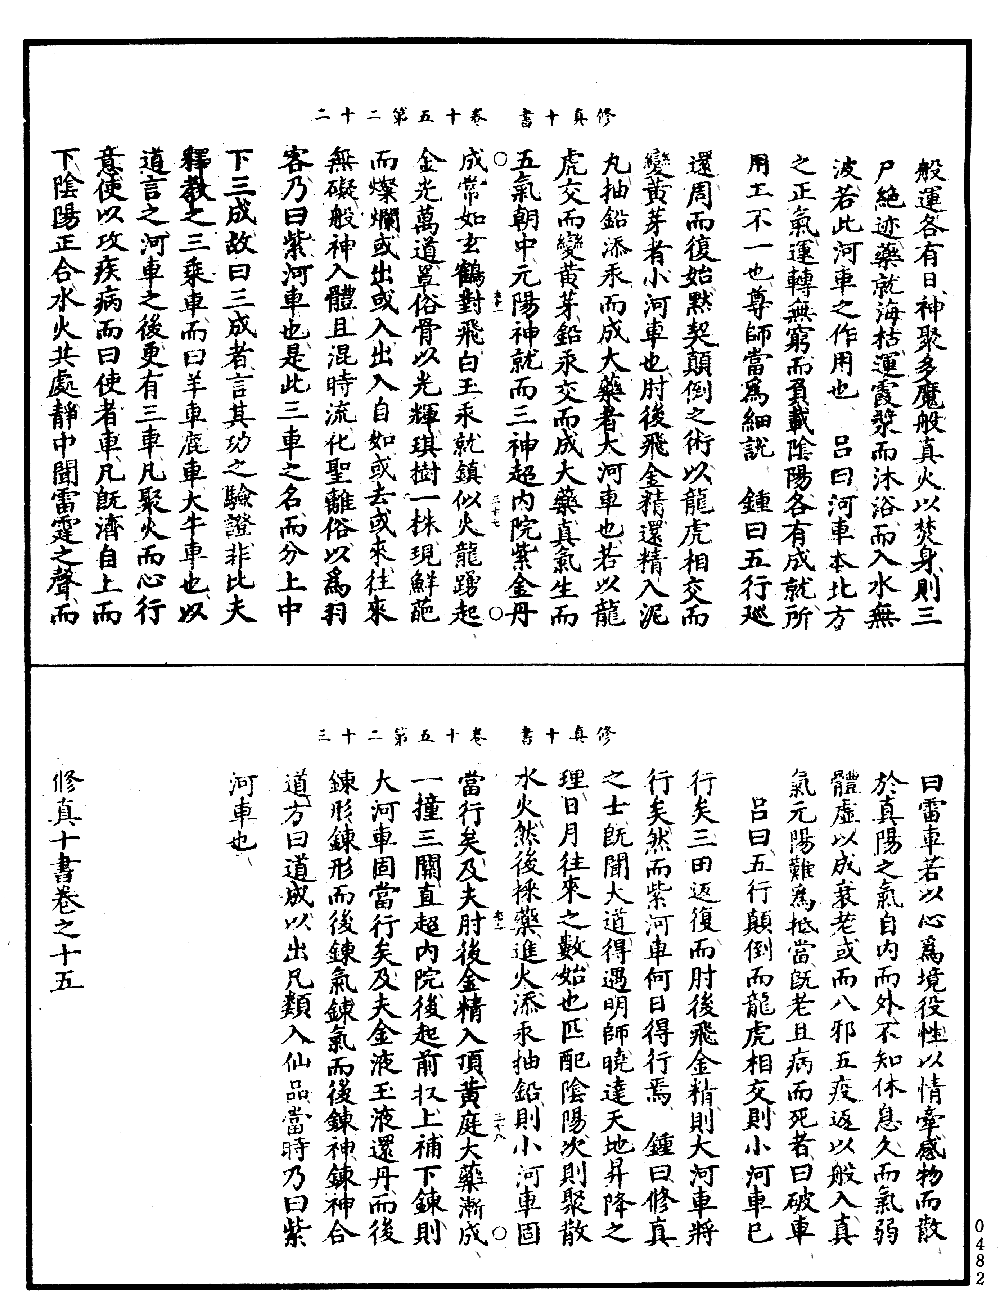 修真十書　卷十五第二十二
般運各有日神聚多魔般真火以焚身則三
尸絶迹藥就海枯運霞漿而沐浴而入水無
波若此河車之作用也　呂曰河車本北方
之正氣運轉無窮而負載陰陽各有成就所
用工不一也尊師當爲細說　鍾曰五行巡
還周而復始默契顛倒之術以龍虎相交而
變黃芽者小河車也肘後飛金精還精入泥
丸抽鉛添汞而成大藥者大河車也若以龍
虎交而變黃芽鉛汞交而成大藥真氣生而
五氣朝中元陽神就而三神超内院紫金丹
三十七
成常如玄鶴對飛白玉汞就鎮似火龍踴起
金光萬道罩俗骨以光輝琪樹一株現鮮葩
而燦爛或出或入出入自如或去或來往來
無礙般神入體且混時流化聖離俗以爲羽
客乃曰紫河車也是此三車之名而分上中
下三成故曰三成者言其功之驗證非比夫
釋教之三乘車而曰羊車鹿車大牛車也以
道言之河車之後更有三車凡聚火而心行
意使以攻疾病而曰使者車凡旣濟自上而
下陰陽正合水火共處靜中聞雷霆之聲而
修真十書　卷十五第二十三
曰雷車若以心爲境役性以情牽感物而散
於真陽之氣自内而外不知休息久而氣弱
體虛以成衰老或而八邪五疫返以般入真
氣元陽難爲抵當旣老且病而死者曰破車
呂曰五行顛倒而龍虎相交則小河車已
行矣三田返復而肘後飛金精則大河車將
行矣然而紫河車何日得行焉　鍾曰修真
之士旣聞大道得遇明師曉達天地昇降之
理日月往來之數始也匹配陰陽次則聚散
水火然後採藥進火添汞抽鉛則小河車固
三十八
當行矣及夫肘後金精入頂黃庭大藥漸成
一撞三關直超内院後起前收上補下鍊則
大河車固當行矣及夫金液玉液還丹而後
鍊形鍊形而後鍊氣鍊氣而後鍊神鍊神合
道方曰道成以出凡類入仙品當時乃曰紫
河車也
修真十書卷之十五
0482